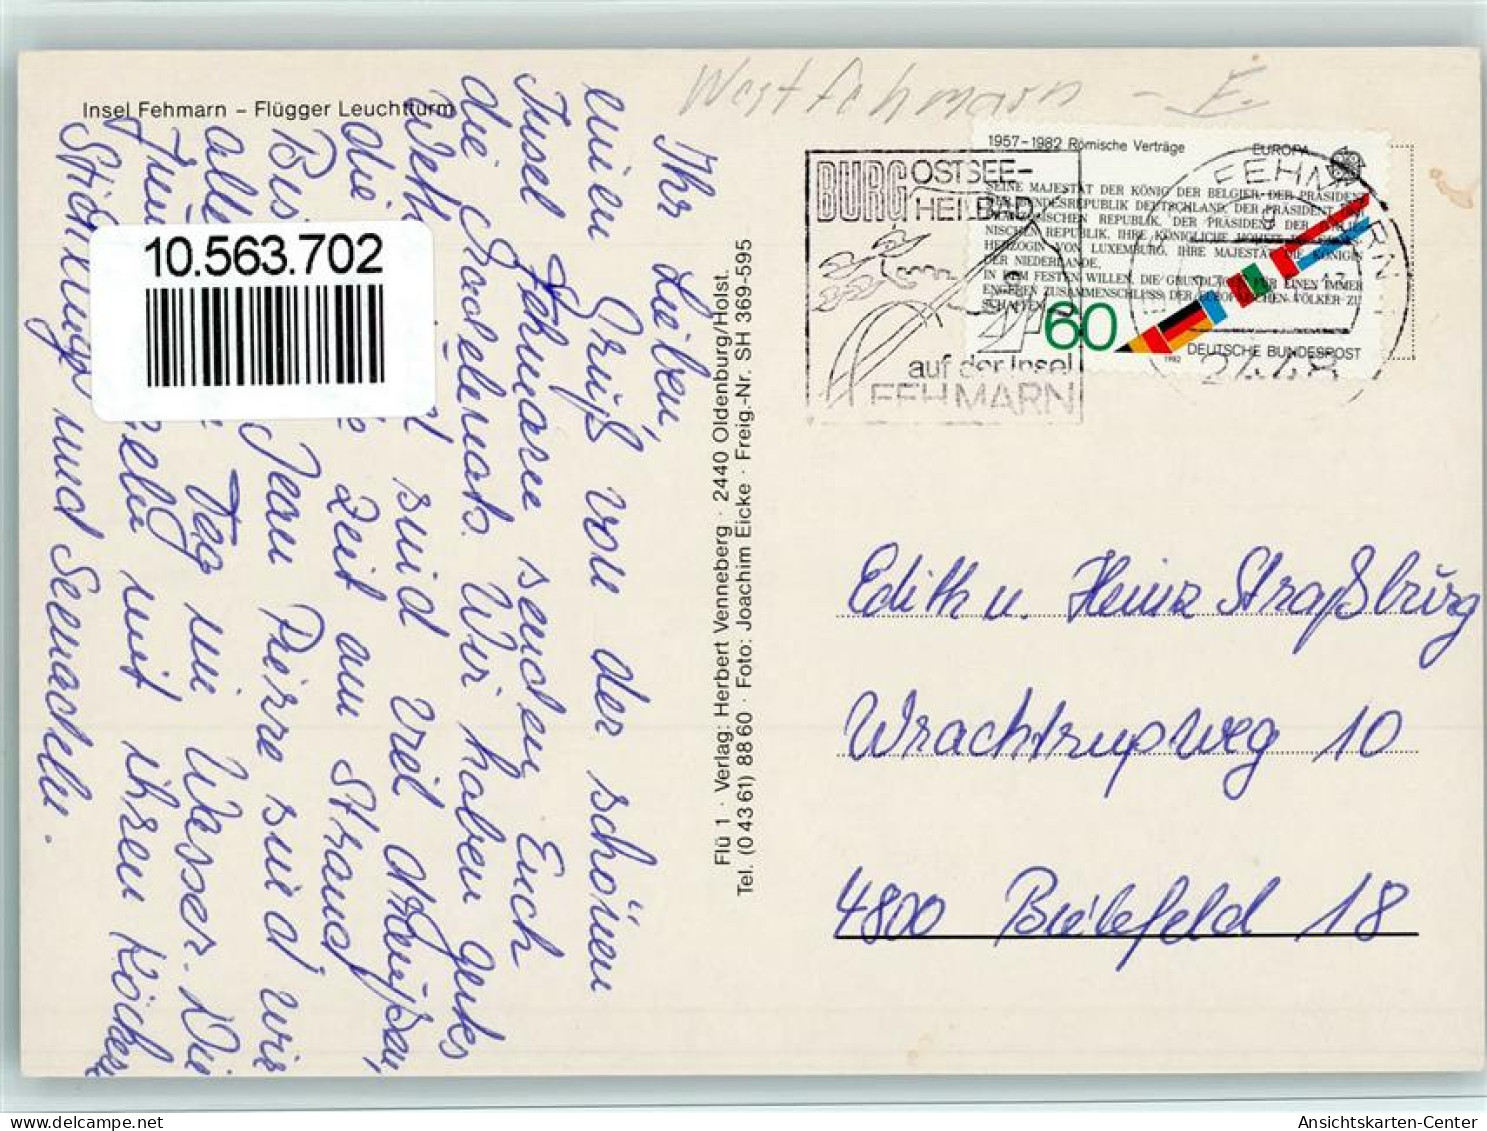 Insel Fehmarn – Flügger Leuchtturm
Westfehmarn – E.
10.563.702
Ihr Lieben,
einen Gruß von der schönen
Insel Fehmarn senden Euch
die Grodelerats. Wir haben gutes
Wett sind viel draußen,
die Zeit am Strand
Bis Jean Pierre sind wir
alle Tag im Wasser. Die
mit ihren Köchen
Stichlinge und Seenadeln.
Flü 1 · Verlag: Herbert Venneberg · 2440 Oldenburg/Holst.
Tel. (0 43 61) 88 60 · Foto: Joachim Eicke · Freig.-Nr. SH 369-595
BURG OSTSEE-
HEILBAD
auf der Insel
FEHMARN
1957–1982 Römische Verträge EUROPA
SEINE MAJESTÄT DER KÖNIG DER BELGIER, DER PRÄSIDENT
DER BUNDESREPUBLIK DEUTSCHLAND, DER PRÄSIDENT DER
FRANZÖSISCHEN REPUBLIK, DER PRÄSIDENT DER ITALIE-
NISCHEN REPUBLIK, IHRE KÖNIGLICHE HOHEIT DIE GROSS-
HERZOGIN VON LUXEMBURG, IHRE MAJESTÄT DIE KÖNIGIN
DER NIEDERLANDE,
IN DEM FESTEN WILLEN, DIE GRUNDLAGEN FÜR EINEN IMMER
ENGEREN ZUSAMMENSCHLUSS DER EUROPÄISCHEN VÖLKER ZU
SCHAFFEN
60
1982 DEUTSCHE BUNDESPOST
FEHMARN 1
2448
Edith u. Heinz Straßburg
Wrachtrupweg 10
4800 Bielefeld 18
www.delcampe.net
Ansichtskarten-Center